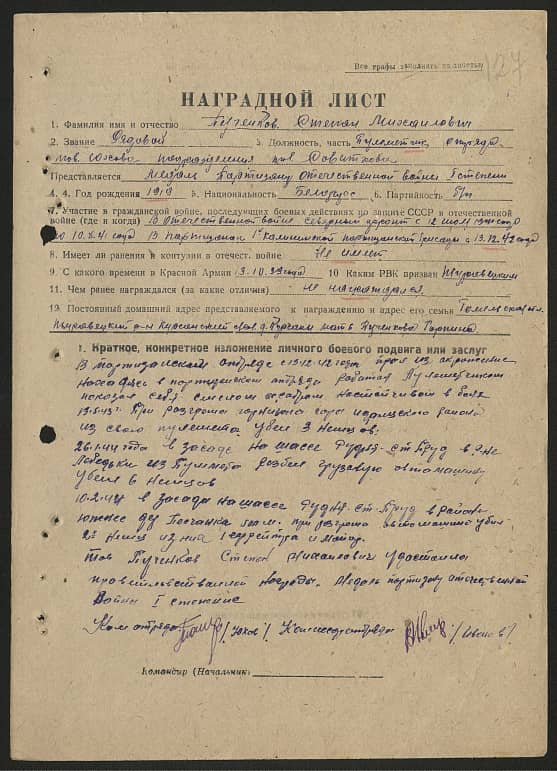 Все графы заполнять полностью
127
НАГРАДНОЙ ЛИСТ
1. Фамилия имя и отчество Пученков Степан Михаилович
2. Звание Рядовой 3. Должность, часть Пулеметчик отряда
Представляется Медаль Партизану Отечественной войны I степени
4. 4. Год рождения 1919 5. Национальность Белорус 6. Партийность б/п
7. Участие в гражданской войне, последующих боевых действиях по защите СССР и отечественной
войне (где и когда) В Отечественной войне северный фронт с 12 июля 1941 года
по 10.8.41 года В партизанах 1й Калининской партизанской бригады с 13.12.42 года
8. Имеет ли ранения и контузии в отечест. войне Не имеет
9. С какого времени в Красной Армии 3.10.39 года 10 Каким РВК призван
11. Чем ранее награждался (за какие отличия) не награждался
12. Постоянный домашний адрес представляемого к награждению и адрес его семьи Гомельская обл.
р-н с/сов д. мать Пученкова
1. Краткое, конкретное изложение личного боевого подвига или заслуг
В партизанском отряде с 13.12.42 года
в партизанском отряде работая Пулеметчиком
показал себя смелом настойчивом в боях
13.5.43г. При разгроме гарнизона района
из своего пулемета убил 3 Немцов.
26.1.44 года в засаде на шассе Рудня-ст. Пруд в р-не
Лебедьки из Пулемета разбил грузовую автомашину
убил 6 Немцов
10.2.44 в засаде на шассе Рудня-ст. Пруд в районе
южнее дер. при разгроме автомашины убил
2х Немцов из них 1 ефрейтор и майор.
тов Пученков Степан Михаилович удостоин
правительственной награды. Медаль партизану отечественной
Войны I степени
Ком отряда /Юхов/ Комиссар отряда /Иванов/
Командир (Начальник)